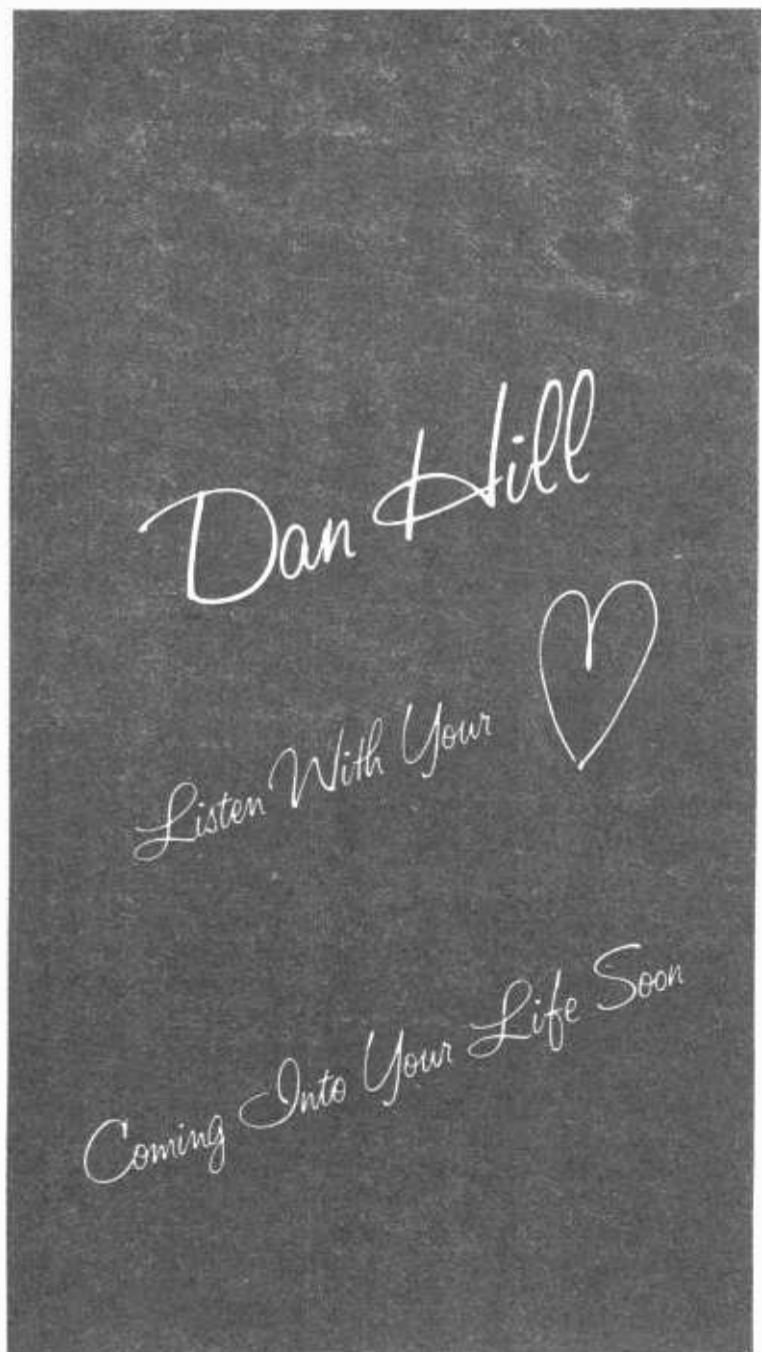 Dan Hill
Listen With Your
Coming Into Your Life Soon